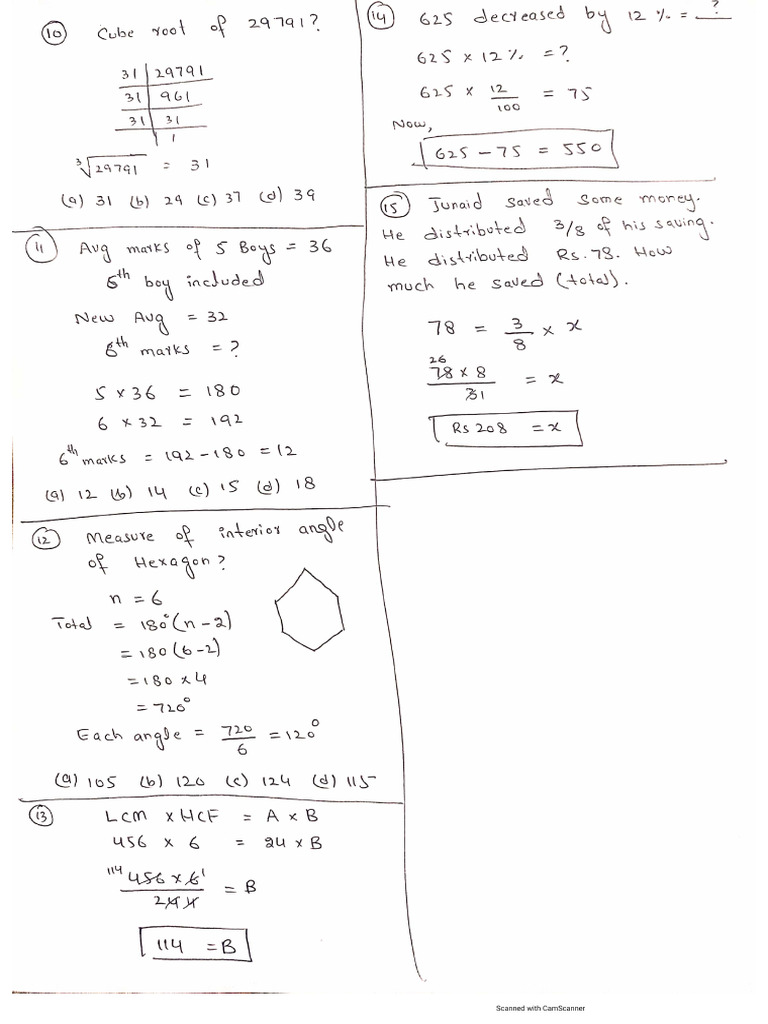 10 Cube root of 29791?
31 | 29791
31 | 961
31 | 31
1
³√29791 = 31
(a) 31 (b) 29 (c) 37 (d) 39
11 Avg marks of 5 Boys = 36
6th boy included
New Avg = 32
6th marks = ?
5 × 36 = 180
6 × 32 = 192
6th marks = 192 - 180 = 12
(a) 12 (b) 14 (c) 15 (d) 18
12 Measure of interior angle
of Hexagon?
n = 6
Total = 180°(n-2)
= 180(6-2)
= 180 × 4
= 720°
Each angle = 720/6 = 120°
(a) 105 (b) 120 (c) 124 (d) 115
13 LCM × HCF = A × B
456 × 6 = 24 × B
114 456 × 6 1
24 4 = B
114 = B
14 625 decreased by 12 % = ?
625 × 12 % = ?
625 × 12/100 = 75
Now,
625 - 75 = 550
15 Junaid saved some money.
He distributed 3/8 of his saving.
He distributed Rs. 78. How
much he saved (total).
78 = 3/8 × x
26
78 × 8 / 31 = x
Rs 208 = x
Scanned with CamScanner